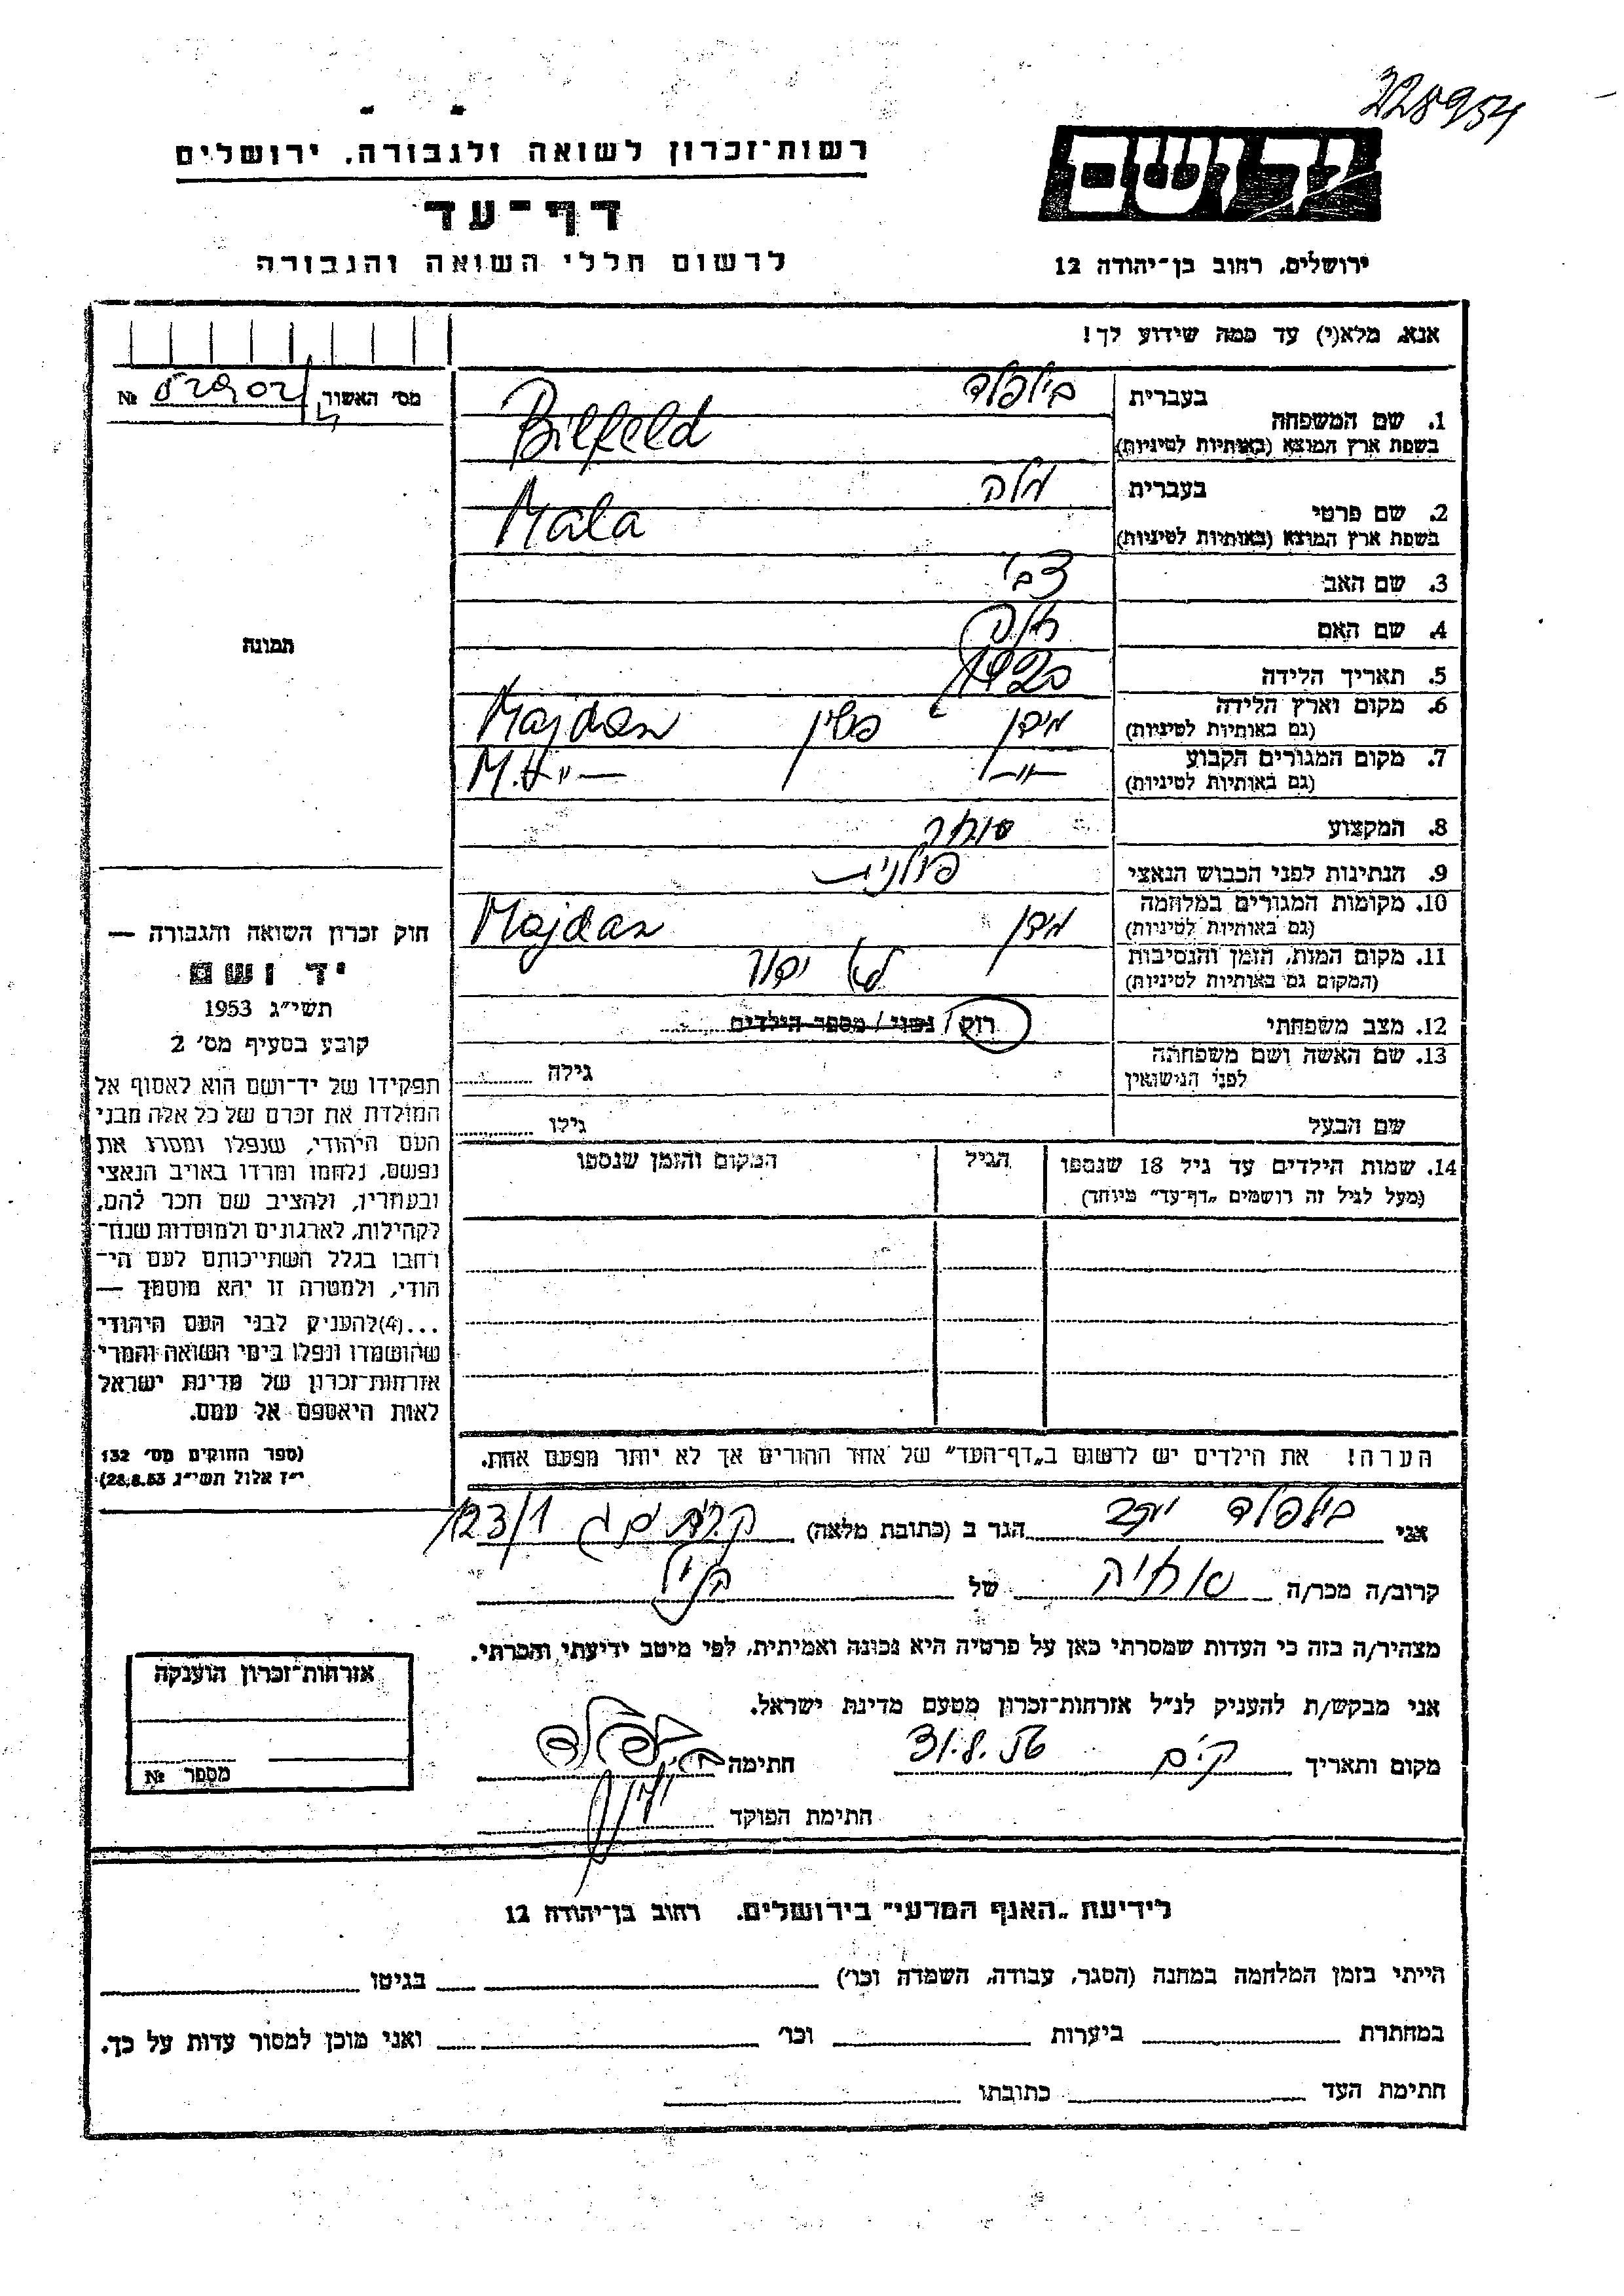 228954
רשות־זכרון לשואה ולגבורה, ירושלים
יד ושם
דף־עד
לרשום חללי השואה והגבורה
ירושלים, רחוב בן־יהודה 12
אנא, מלא(י) עד כמה שידוע לך!
מס' האשור № 52902
1. שם המשפחה
בעברית בילפלד
בשפת ארץ המוצא (באותיות לטיניות) Bilfeld
2. שם פרטי
בעברית מלה
בשפת ארץ המוצא (באותיות לטיניות) Mala
3. שם האב צבי
4. שם האם
5. תאריך הלידה 1920
6. מקום וארץ הלידה מידן פולין Majdan
(גם באותיות לטיניות)
7. מקום המגורים הקבוע —״— —״—
(גם באותיות לטיניות)
8. המקצוע סוחר
9. הנתינות לפני הכבוש הנאצי פולנית
10. מקומות המגורים במלחמה מידן Majdan
(גם באותיות לטיניות)
11. מקום המות, הזמן והנסיבות לא ידוע
(המקום גם באותיות לטיניות)
12. מצב משפחתי רוק / נשוי / מספר הילדים
13. שם האשה ושם משפחתה גילה
לפני הנישואין
שם הבעל גילו
14. שמות הילדים עד גיל 18 שנספו הגיל המקום והזמן שנספו
(מעל לגיל זה רושמים „דף־עד” מיוחד)
הערה! את הילדים יש לרשום ב„דף־העד” של אחד ההורים אך לא יותר מפעם אחת.
תמונה
חוק זכרון השואה והגבורה —
יד ושם
תשי״ג 1953
קובע בסעיף מס' 2
תפקידו של יד־ושם הוא לאסוף אל
המולדת את זכרם של כל אלה מבני
העם היהודי, שנפלו ומסרו את
נפשם, נלחמו ומרדו באויב הנאצי
ובעוזריו, ולהציב שם וזכר להם,
לקהילות, לארגונים ולמוסדות שנח־
רבו בגלל השתייכותם לעם הי־
הודי, ולמטרה זו יהא מוסמך —
...(4) להעניק לבני העם היהודי
שהושמדו ונפלו בימי השואה והמרי
אזרחות־זכרון של מדינת ישראל
לאות היאספם אל עמם.
(ספר החוקים מס' 132
י״ז אלול תשי״ג 28.8.53)
אני בילפלד יעקב הגר ב (כתובת מלאה) 123/1
קרוב/ה מכר/ה אחיה של הנ״ל
מצהיר/ה בזה כי העדות שמסרתי כאן על פרטיה היא נכונה ואמיתית, לפי מיטב ידיעתי והכרתי.
אני מבקש/ת להעניק לנ״ל אזרחות־זכרון מטעם מדינת ישראל.
מקום ותאריך ק״ם 31.8.56 חתימה בילפלד
חתימת הפוקד
אזרחות־זכרון הוענקה
מספר №
לידיעת „האגף המדעי” בירושלים, רחוב בן־יהודה 12
הייתי בזמן המלחמה במחנה (הסגר, עבודה, השמדה וכו') בגיטו
במחתרת ביערות וכו' ואני מוכן למסור עדות על כך.
חתימת העד כתובתו